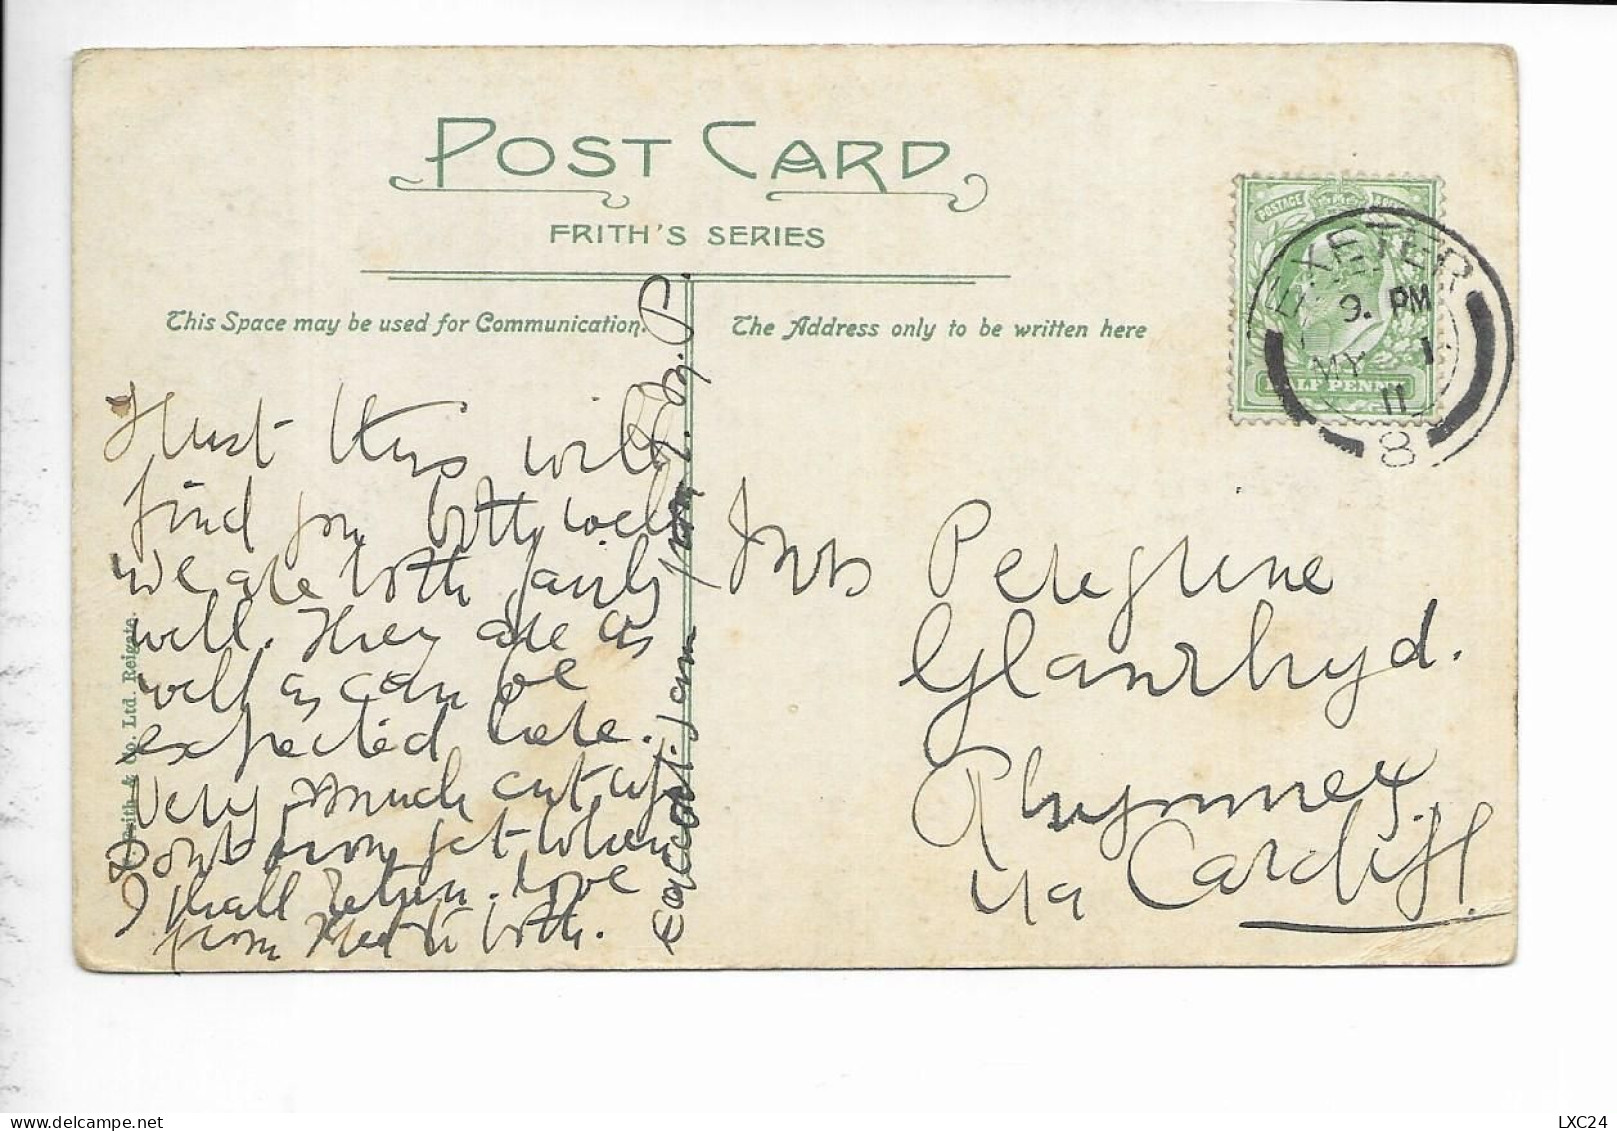 POST CARD
FRITH'S SERIES
This Space may be used for Communication.
The Address only to be written here
POSTAGE
HALF PENNY
EXETER
9. PM
MY 1
11
8
Trust this will
find you both well
we are both fairly
well. They are as
well as can be
expected here.
Very much cut up
Dont know yet when
I shall return. Love
from to both.
Mrs Peregrine
Glanrhyd.
Rhymney.
via Cardiff.
Frith & Co. Ltd. Reigate.
LXC24